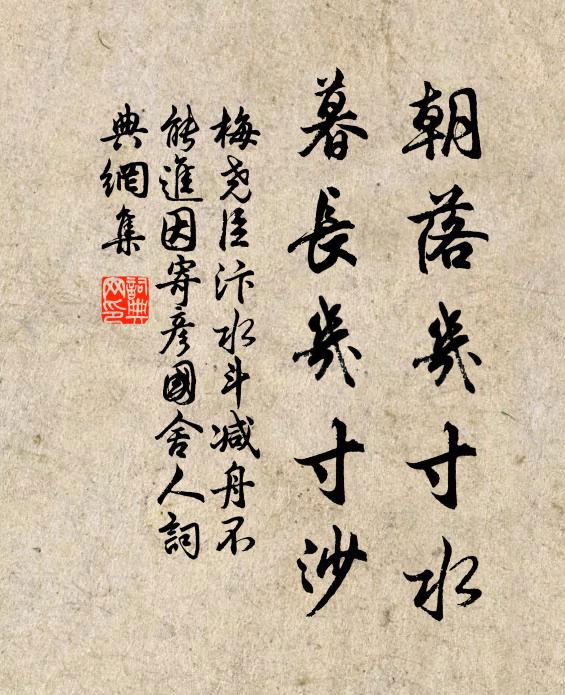 朝落幾寸水
暮長幾寸沙
梅堯臣汴水斗減舟不
能進因寄彦國舍人詞
典網集
詞典
网印